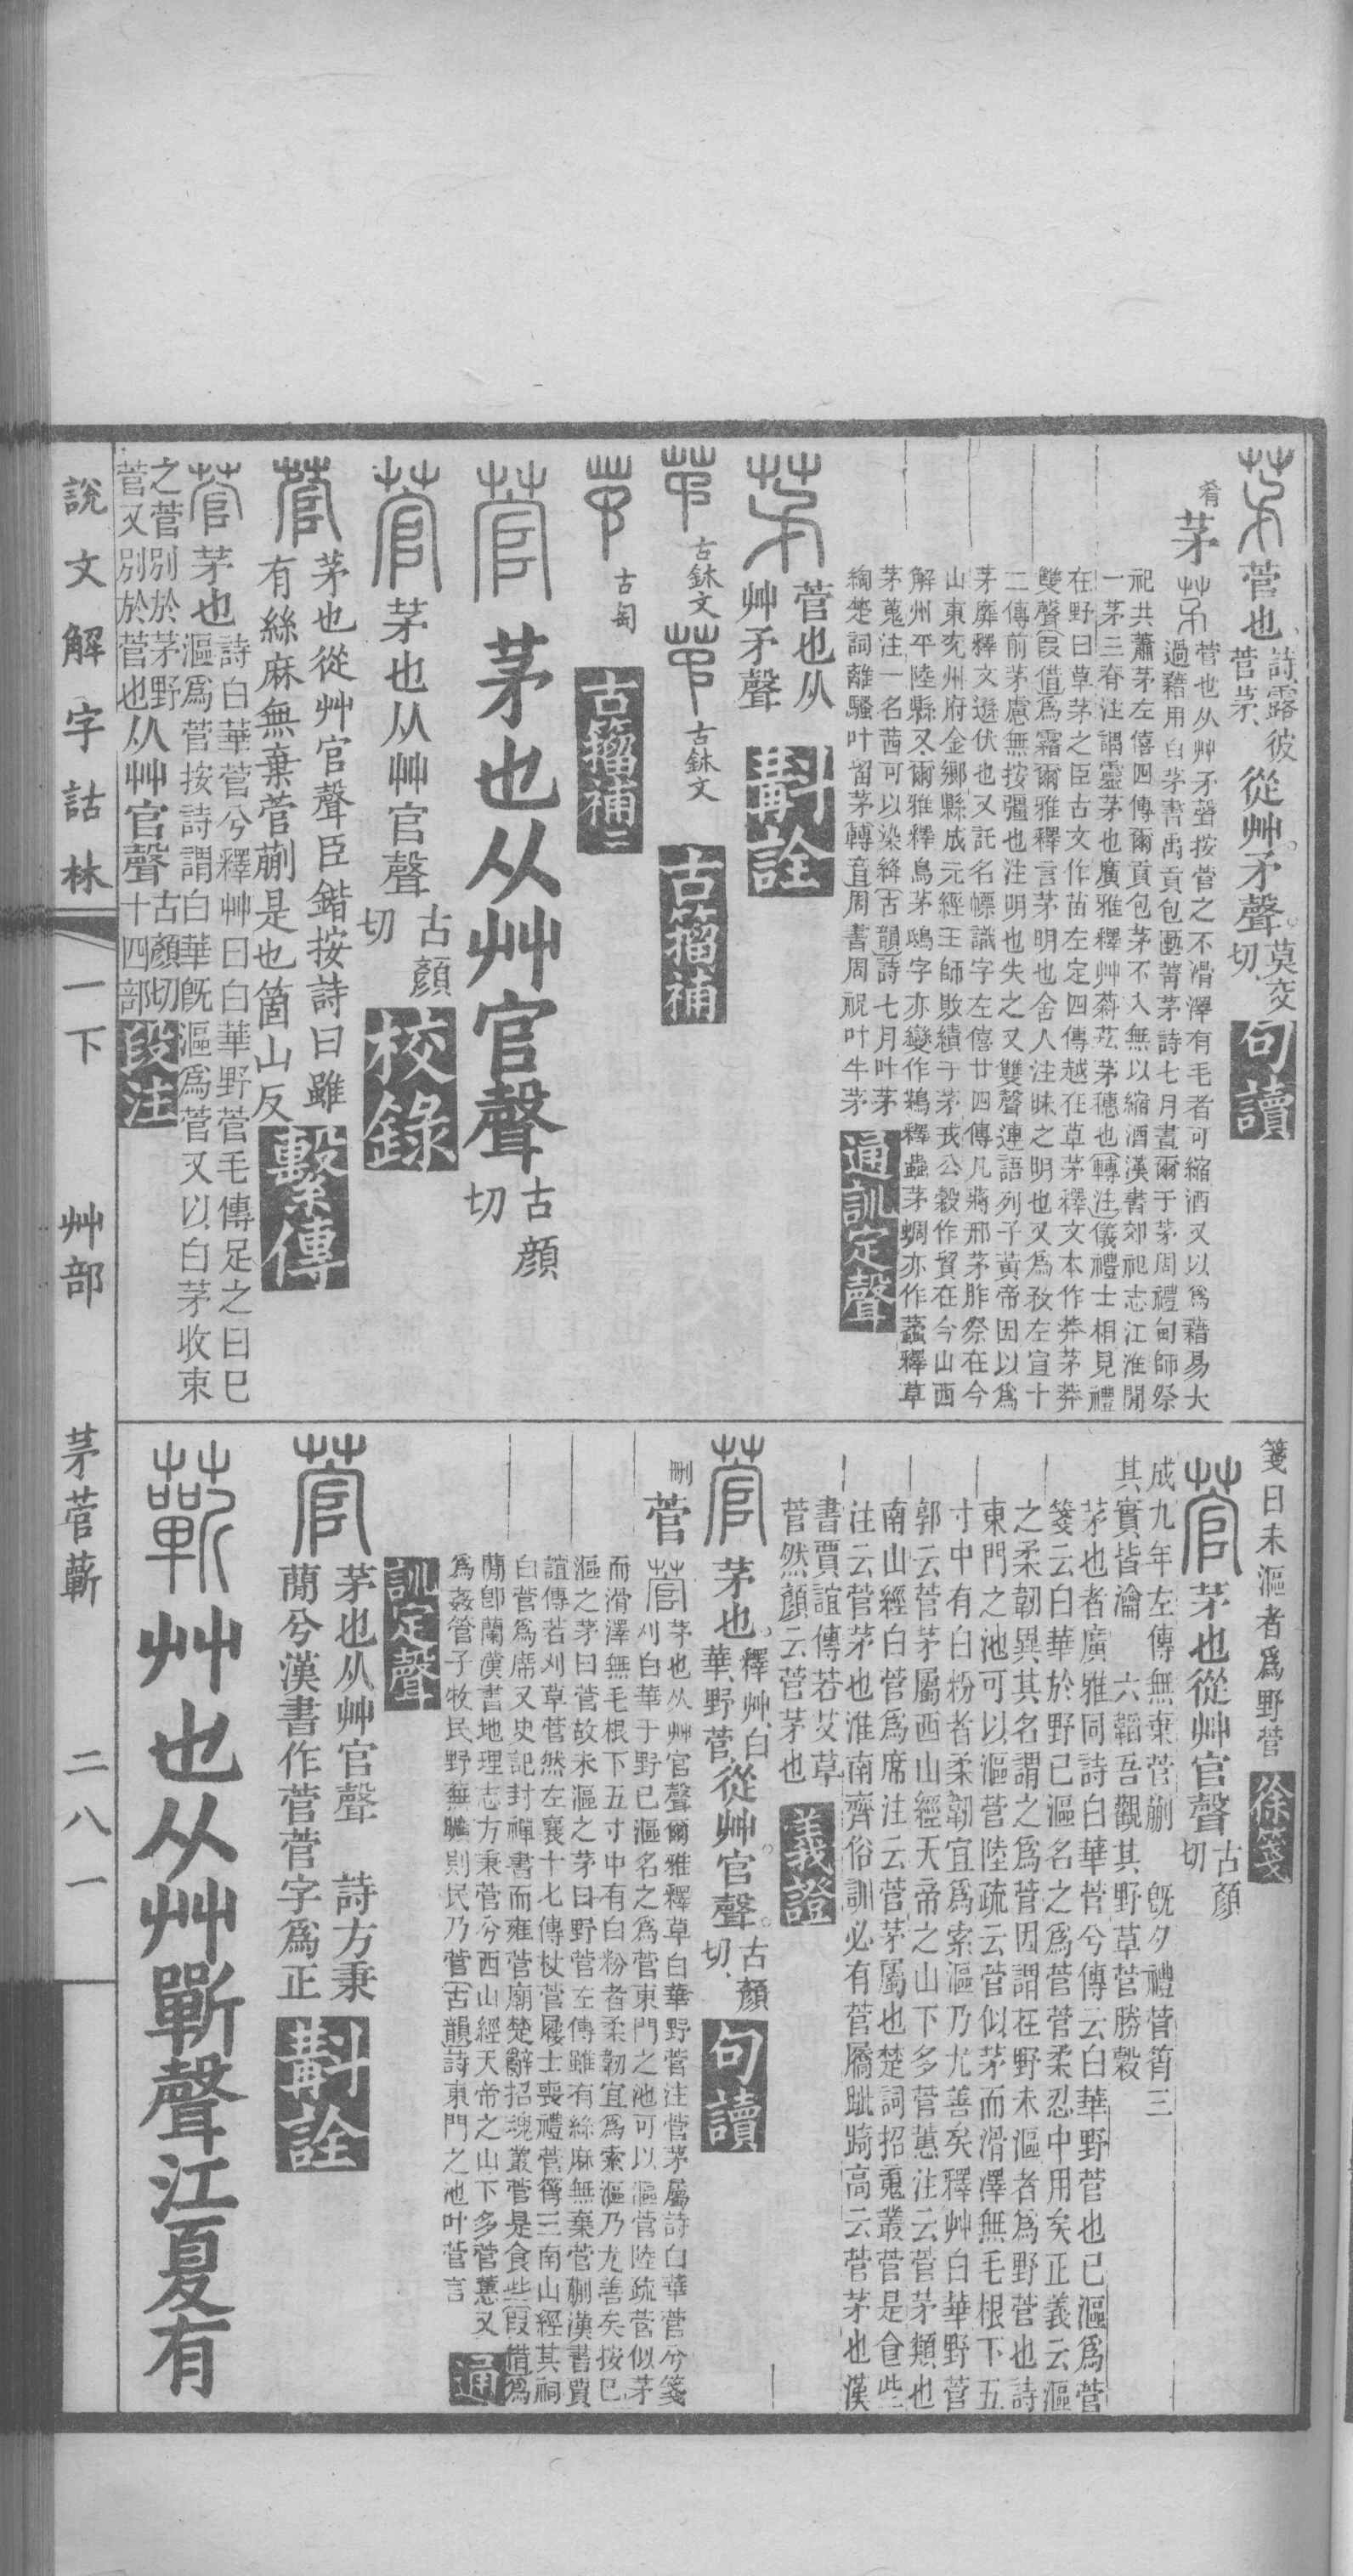 菅也詩露彼菅茅從艸矛聲莫交切句讀
肴茅
菅也从艸矛聲按菅之不滑澤有毛者可縮酒又以爲藉易大
過藉用白茅書禹貢包匭菁茅詩七月晝爾于茅周禮甸師祭
祀共蕭茅左僖四傳爾貢包茅不入無以縮酒漢書郊祀志江淮閒
一茅三脊注謂靈茅也廣雅釋艸菊茲茅穗也轉注儀禮士相見禮
在野曰草茅之臣古文作苗左定四傳越在草茅釋文本作莽茅莽
雙聲叚借爲霿爾雅釋言茅明也舍人注昧之明也又爲敄左宣十
二傳前茅慮無按彊也注明也失之又雙聲連語列子黃帝因以爲
茅靡釋文遜伏也又託名幖識字左僖廿四傳凡蔣邢茅胙祭在今
山東兖州府金鄉縣成元經王師敗績于茅戎公穀作貿在今山西
解州平陸縣又爾雅釋鳥茅鴟字亦變作鶜釋蟲茅蜩亦作蠽釋草
茅蒐注一名茜可以染絳古韻詩七月叶茅
綯楚詞離騷叶留茅轉直周書周祝叶牛茅通訓定聲
菅也从艸矛聲斠詮
古鉥文
古鉥文古籀補
古匋古籀補二
茅也从艸官聲古顔切
茅也从艸官聲古顔切校錄
茅也從艸官聲臣鍇按詩曰雖
有絲麻無棄菅蒯是也箇山反繫傳
茅也詩白華菅兮釋艸曰白華野菅毛傳足之曰已
漚爲菅按詩謂白華旣漚爲菅又以白茅收束
之菅別於茅野菅又別於菅也从艸官聲古顏切十四部段注
箋曰未漚者爲野菅徐箋
茅也從艸官聲古顏切
成九年左傳無棄菅蒯旣夕禮菅筲三
其實皆瀹六韜吾觀其野草菅勝榖
茅也者廣雅同詩白華菅兮傳云白華野菅也已漚爲菅
箋云白華於野已漚名之爲菅菅柔忍中用矣正義云漚
之柔韌異其名謂之爲菅因謂在野未漚者爲野菅也詩
東門之池可以漚菅陸疏云菅似茅而滑澤無毛根下五
寸中有白粉者柔韌宜爲索漚乃尤善矣釋艸白華野菅
郭云菅茅屬西山經天帝之山下多菅蕙注云菅茅類也
南山經白菅爲席注云菅茅屬也楚詞招䰟叢菅是食些
注云菅茅也淮南齊俗訓必有菅屩跐踦高云菅茅也漢
書賈誼傳若艾草
菅然顏云菅茅也義證
茅也釋艸白華野菅從艸官聲古顏切句讀
刪菅
茅也从艸官聲爾雅釋草白華野菅注菅茅屬詩白華菅兮箋
刈白華于野已漚名之爲菅東門之池可以漚菅陸疏菅似茅
而滑澤無毛根下五寸中有白粉者柔韌宜爲索漚乃尤善矣按已
漚之茅曰菅故未漚之茅曰野菅左傳雖有絲麻無棄菅蒯漢書賈
誼傳若刈草菅然左襄十七傳杖菅屨士喪禮菅筲三南山經其祠
白菅爲席又史記封禪書而雍菅廟楚辭招魂叢菅是食些叚借爲
蕑卽蘭漢書地理志方秉菅兮西山經天帝之山下多菅蕙又
爲姦管子牧民野蕪曠則民乃菅古韻詩東門之池叶菅言通
訓定聲
茅也从艸官聲詩方秉
蕑兮漢書作菅菅字爲正斠詮
艸也从艸蘄聲江夏有
說文解字詁林一下艸部茅菅蘄二八一